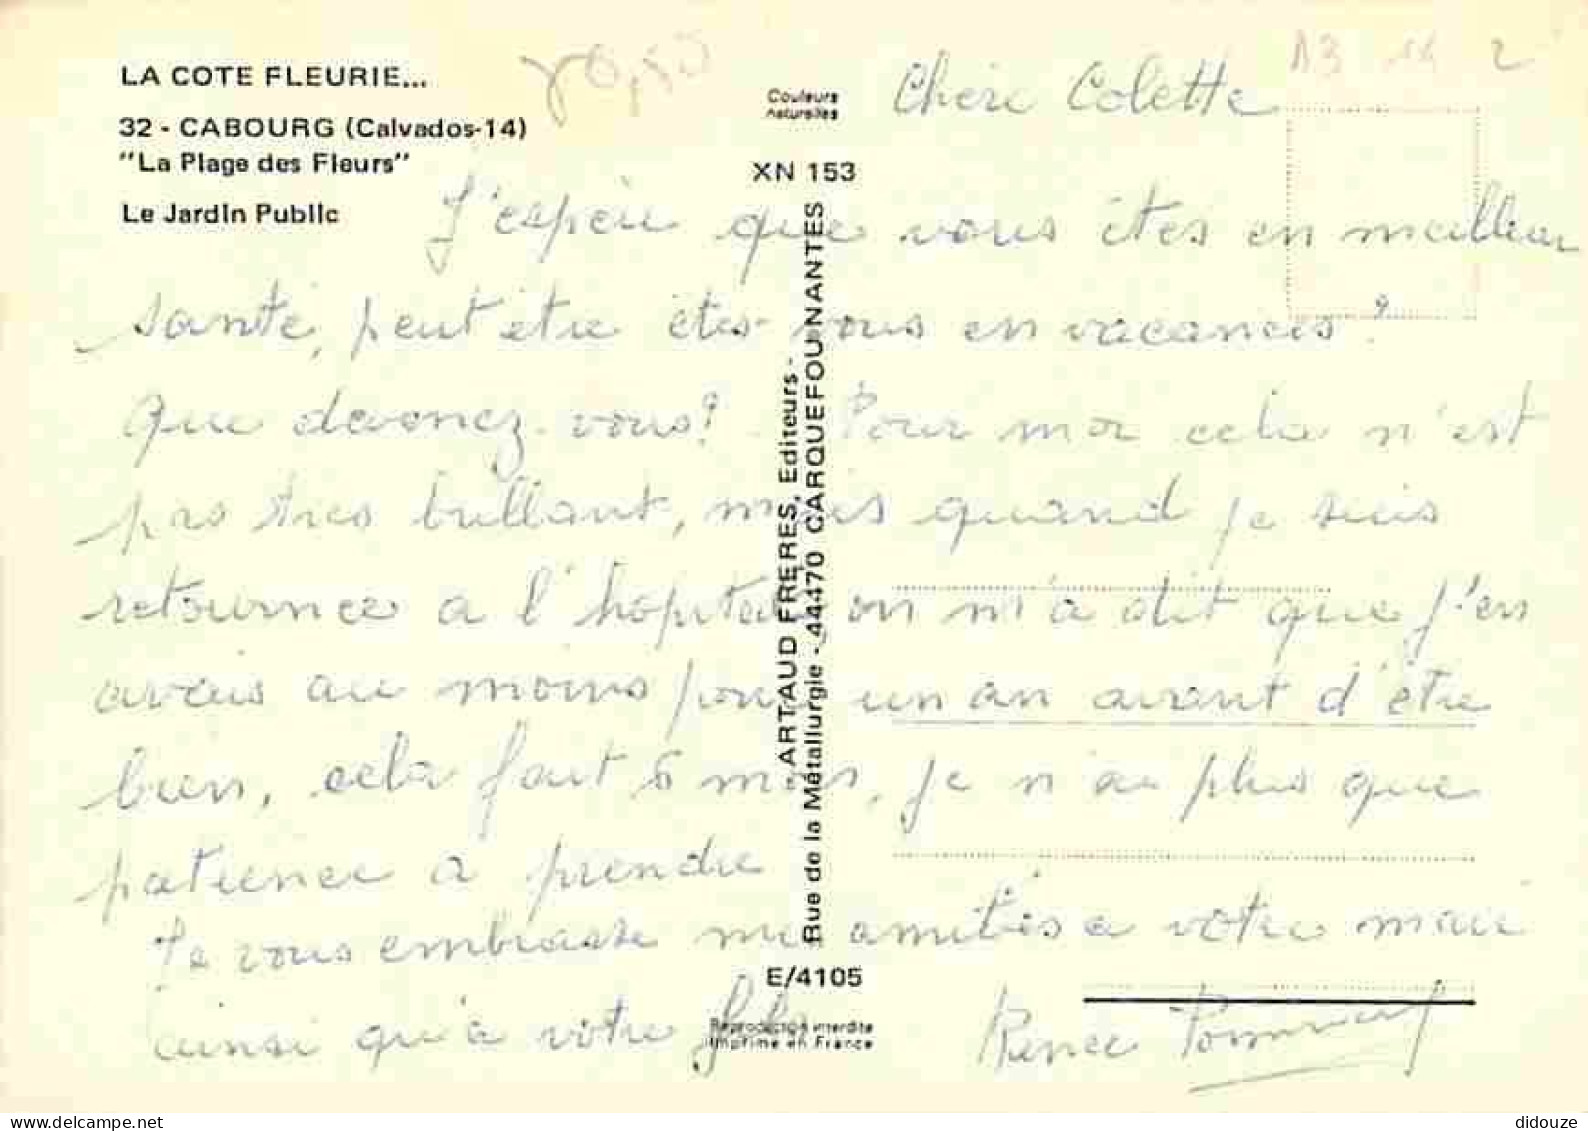 LA COTE FLEURIE...
32 - CABOURG (Calvados-14)
"La Plage des Fleurs"
Le Jardin Public
Couleurs
naturelles
XN 153
ARTAUD FRERES, Editeurs -
Rue de la Métallurgie - 44470 CARQUEFOU NANTES
E/4105
Reproduction interdite
Imprimé en France
13 14 2
Chère Colette
J'espère que vous êtes en meilleur
santé, peut être êtes-vous en vacances ?
Que devenez-vous? Pour moi cela n'est
pas très brillant, mais quand je suis
retournée a l'hopital on m'a dit que j'en
avais au moins pour un an avant d'être
bien, cela fait 6 mois, je n'ai plus que
patience a prendre
Je vous embrasse mes amitiés a votre mari
ainsi qu'à votre fils Renée
didouze